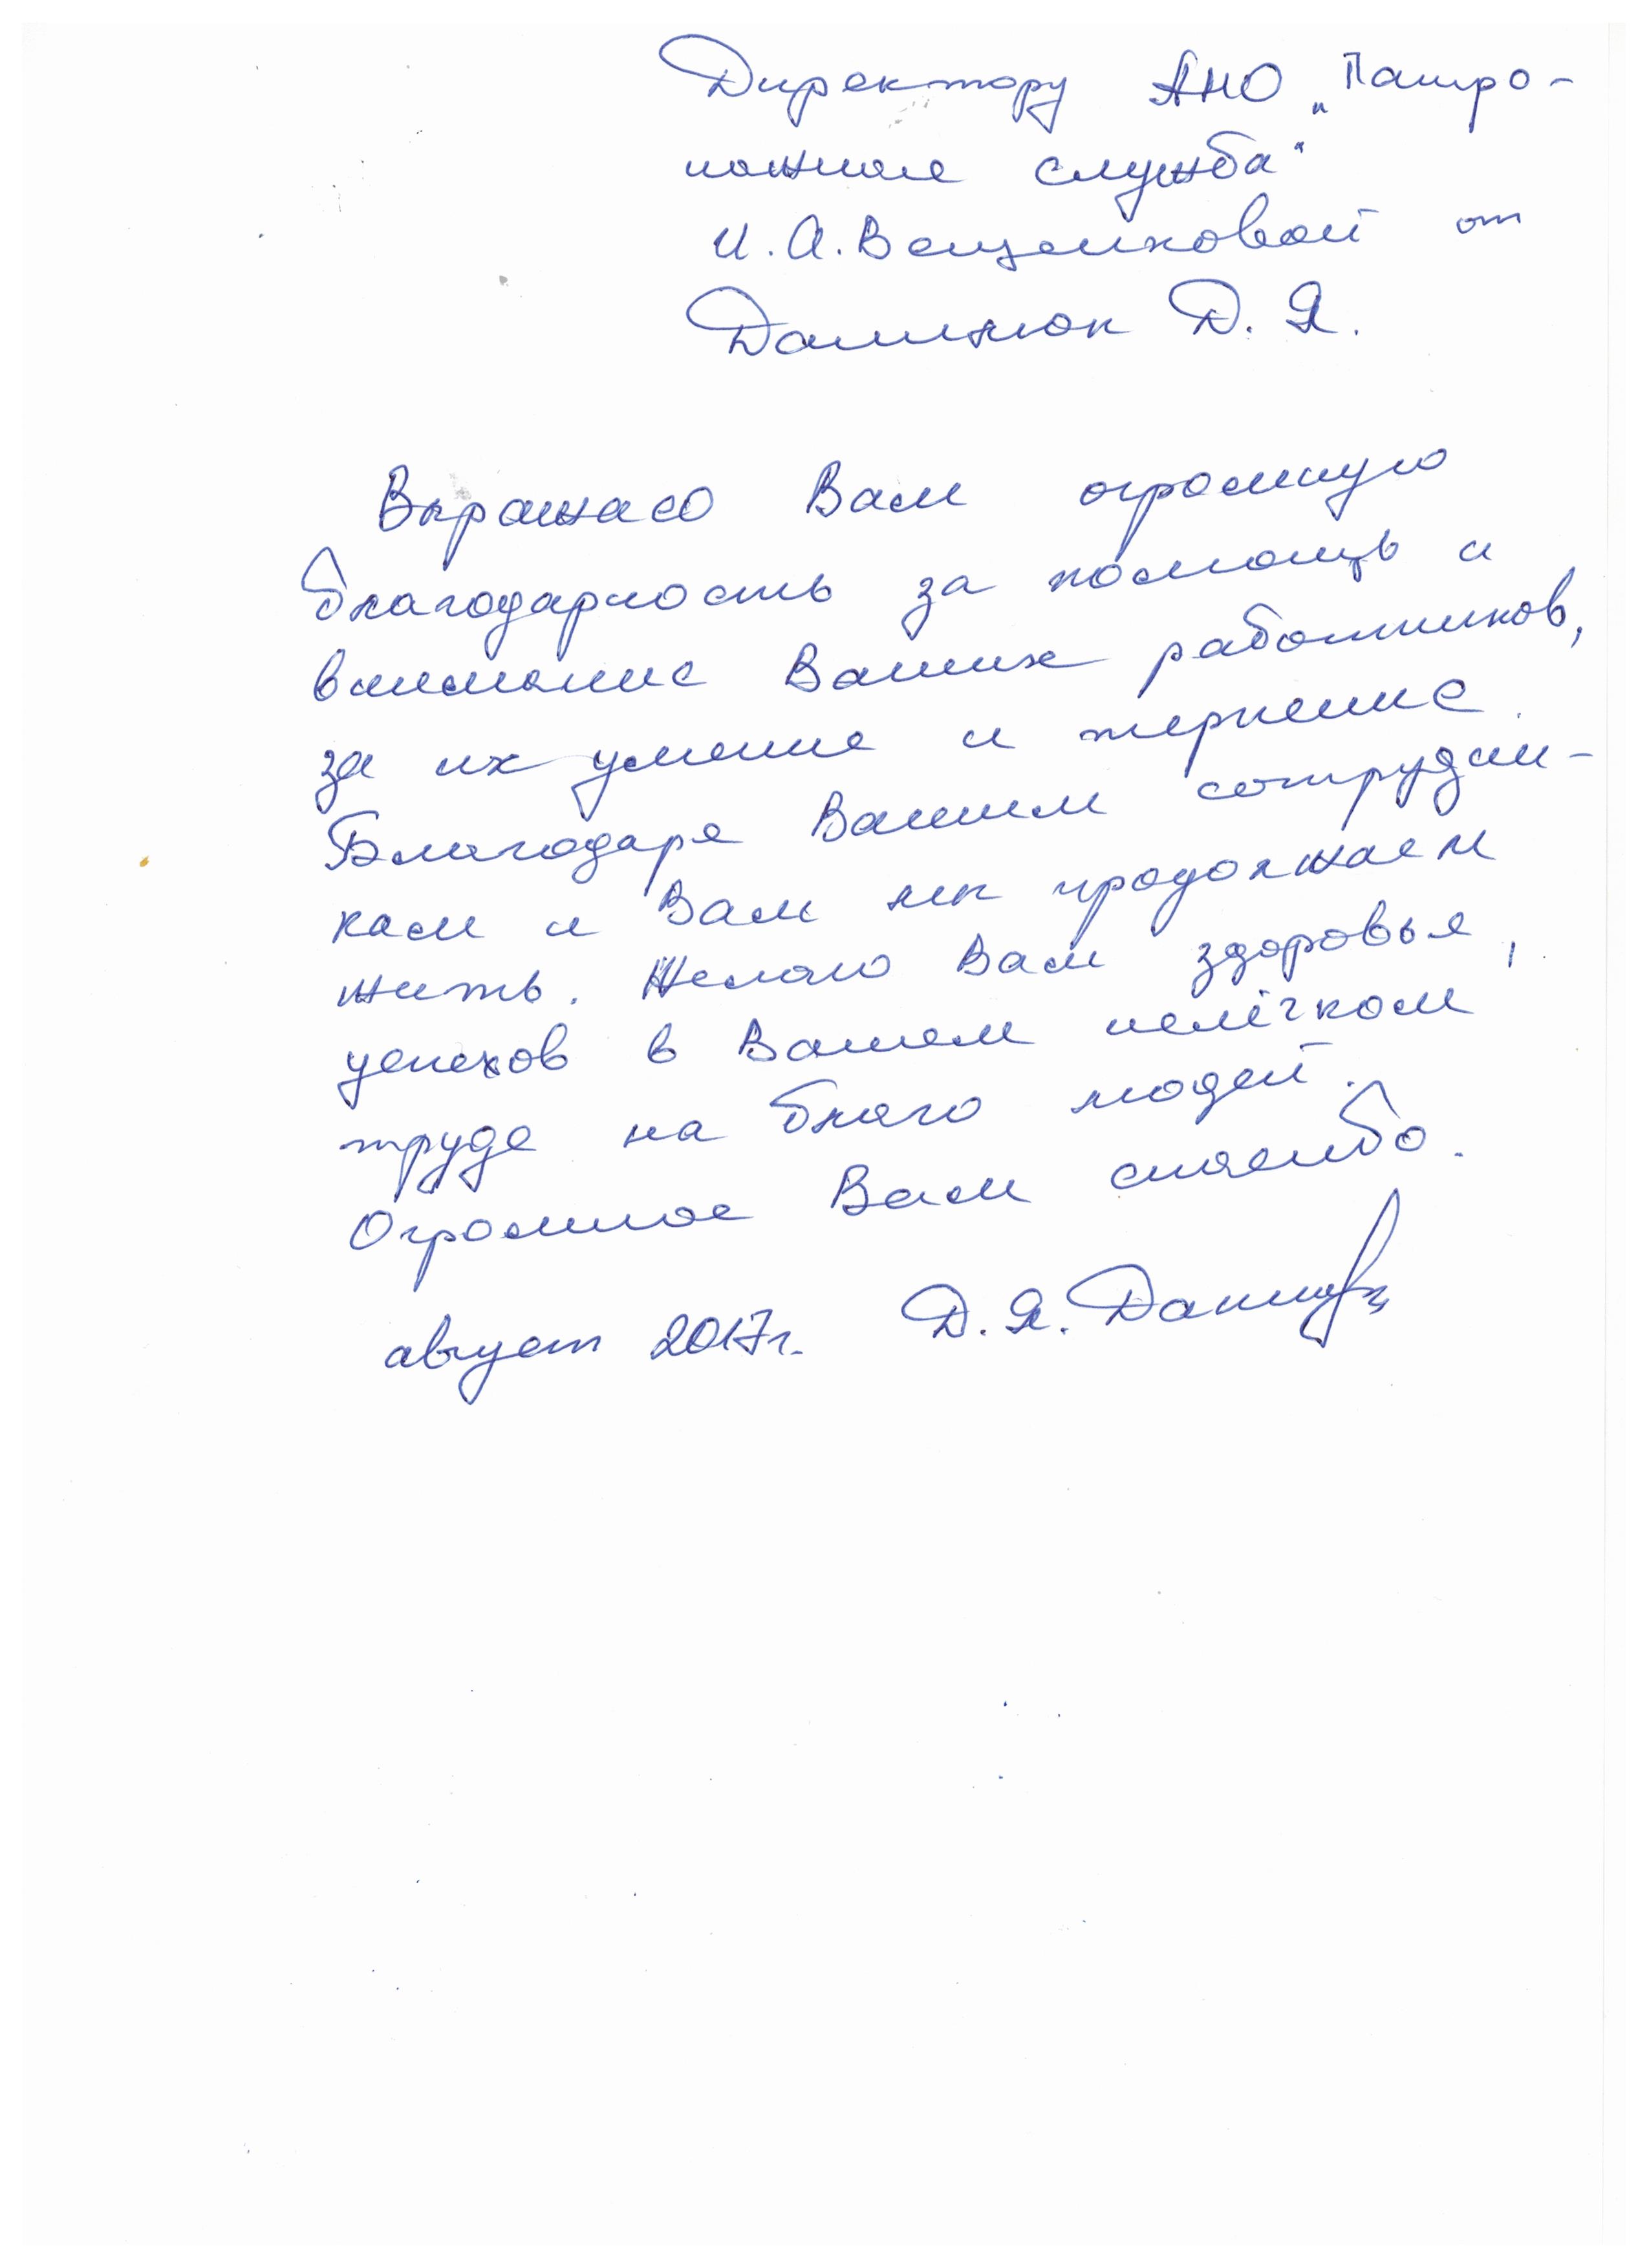 Директору АНО „Патро-
нажная служба"
И. А. Ващенковой от
Данилюк Д. Я.
Выражаю Вам огромную
благодарность за помощь и
внимание Ваших работников,
за их умение и терпение.
Благодаря Вашим сотрудни-
кам и Вам мы продолжаем
жить. Желаю Вам здоровья,
успехов в Вашем нелёгком
труде на благо людей.
Огромное Вам спасибо.
август 2017г. Д. Я.